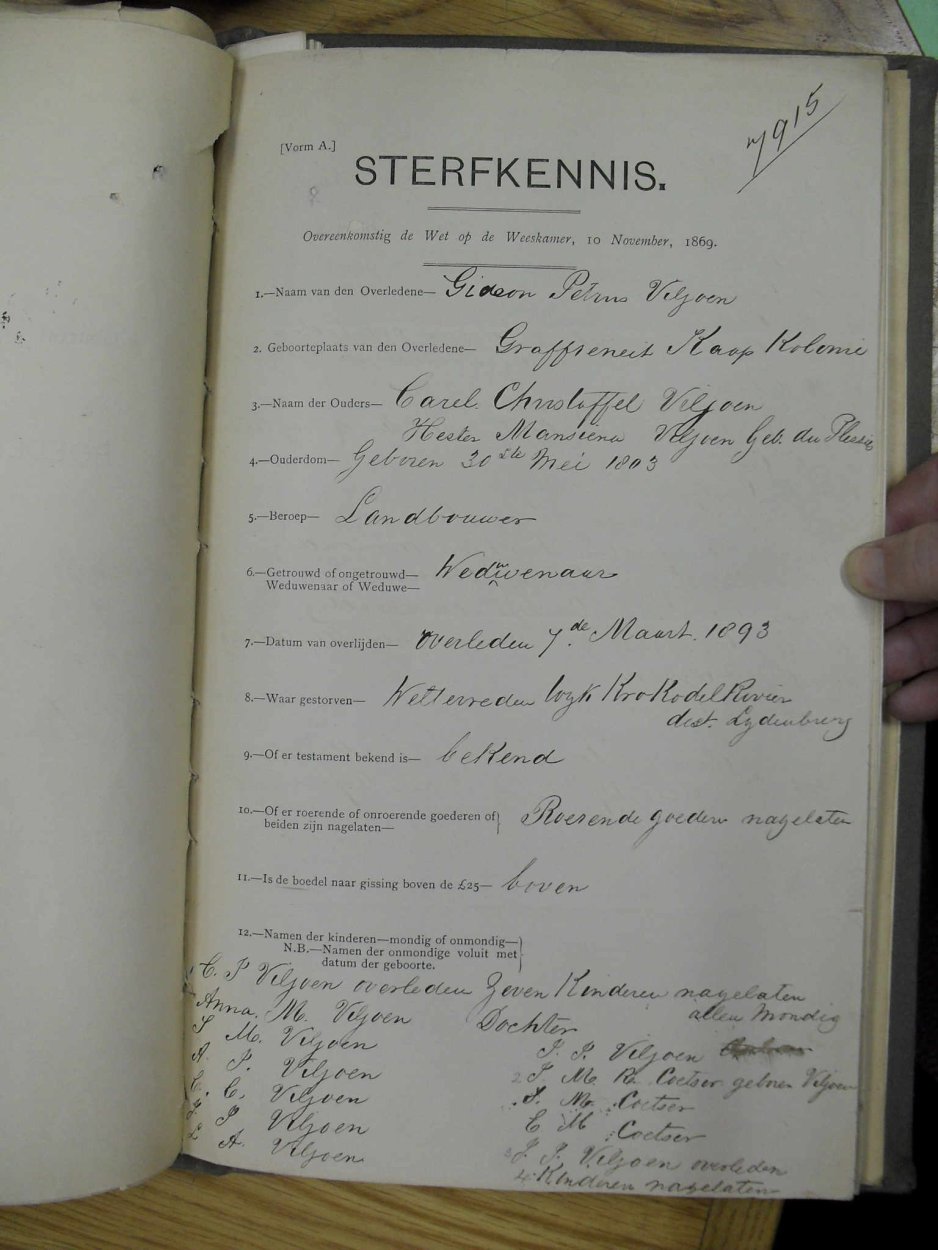 7915
[Vorm A.]
STERFKENNIS.
Overeenkomstig de Wet op de Weeskamer, 10 November, 1869.
1.—Naam van den Overledene— Gideon Petrus Viljoen
2. Geboorteplaats van den Overledene— Graffreneit Kaap Kolonie
3.—Naam der Ouders— Carel Christoffel Viljoen
Hester Viljoen Geb. du Plessis
4.—Ouderdom— Geboren 30ste Mei 1803
5.—Beroep— Landbouwer
6.—Getrouwd of ongetrouwd— Weduwenaar
Weduwenaar of Weduwe—
7.—Datum van overlijden— overleden 7de Maart 1893
8.—Waar gestorven— Weltevreden Wyk Krokodel Rivier
dist. Lydenburg
9.—Of er testament bekend is— bekend
10.—Of er roerende of onroerende goederen of
beiden zijn nagelaten— Roerende goederen nagelaten
11.—Is de boedel naar gissing boven de £25— boven
12.—Namen der kinderen—mondig of onmondig—
N.B.—Namen der onmondige voluit met
datum der geboorte.
C. P Viljoen overleden Zeven Kinderen nagelaten
allen Mondig
Anna. M. Viljoen Dochter
S M. Viljoen
A P. Viljoen
C. C. Viljoen
P Viljoen
A. Viljoen
P. Viljoen
2 M R. Coetser geboren Viljoen
M. Coetser
C M. Coetser
3 Viljoen overleden
4 Kinderen nagelaten